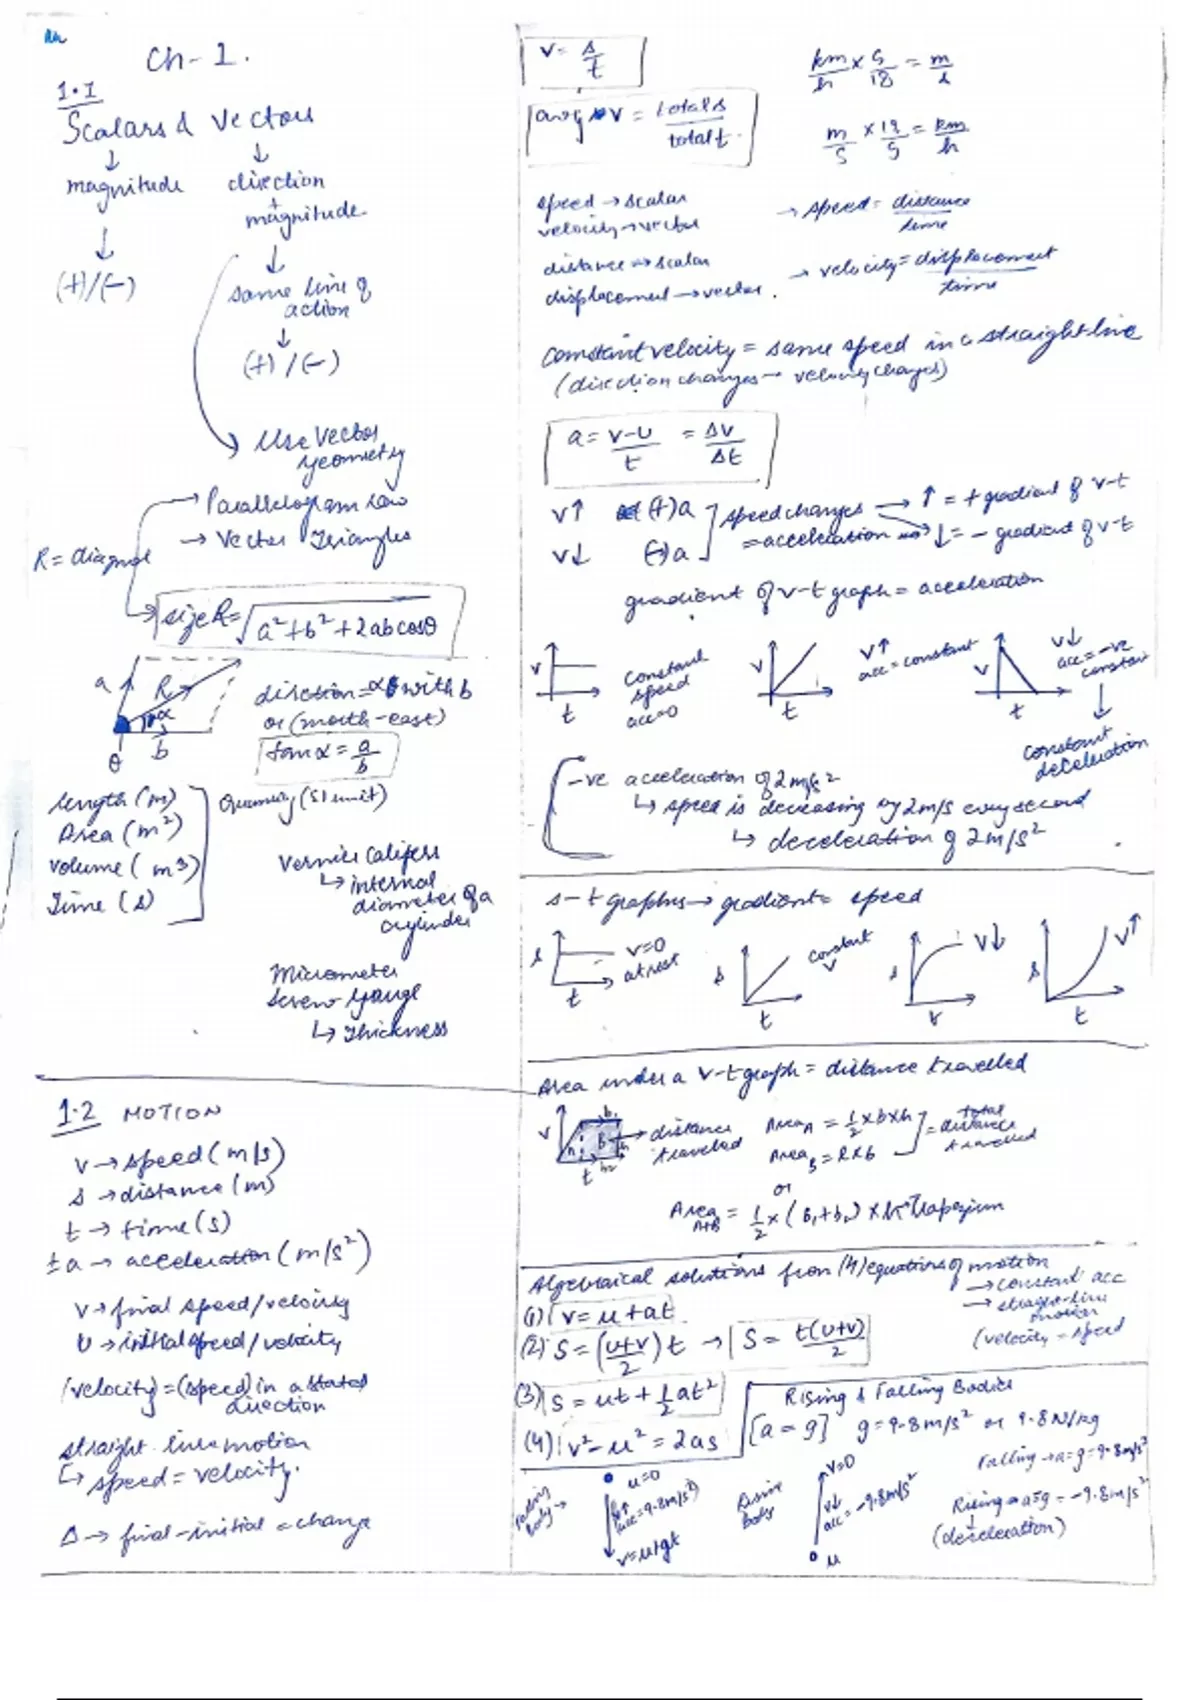 Ch-1.
1.1
Scalars & Vectors
↓ ↓
magnitude direction
+
magnitude
↓ ↓
(+)/(-) same line of
action
↓
(+)/(-)
Use Vector
geometry
→ Parallelogram law
→ Vector Triangles
R = diagonal
size R = √a²+b²+2abcosθ
a R α b θ
direction = α with b
or (north-east)
tan α = a/b
length (m)
Area (m²)
Volume (m³)
Time (s)
Quantity (SI unit)
Vernier Calipers
↳ internal
diameter of a
cylinder
Micrometer
Screw Gauge
↳ Thickness
1.2 MOTION
v → speed (m/s)
s → distance (m)
t → time (s)
±a → acceleration (m/s²)
v → final speed/velocity
U → initial speed/velocity
(velocity) = (speed) in a stated
direction
straight line motion
↳ speed = velocity.
Δ → final-initial = change
v = s/t
avg v = total s/total t
km/h × 5/18 = m/s
m/s × 18/5 = km/h
speed → scalar
velocity → vector
distance → scalar
displacement → vector.
→ speed = distance/time
→ velocity = displacement/time
constant velocity = same speed in a straight line
(direction changes → velocity changes)
a = v-u/t = Δv/Δt
v↑ (+)a
v↓ (-)a
speed changes
= acceleration
→ ↑ = + gradient of v-t
→ ↓ = - gradient of v-t
gradient of v-t graph = acceleration
v t
constant
speed
acc=0
v t
v↑
acc = constant
v t
v↓
acc = -ve
constant
↓
constant
deceleration
-ve acceleration of 2m/s²
↳ speed is decreasing by 2m/s every second
↳ deceleration of 2m/s²
s-t graphs → gradient = speed
s t v=0
at rest
s t constant
v
s v↓
s t v↑
Area under a v-t graph = distance travelled
v t
→ distance
travelled
Area A = 1/2 × b × h
Area B = l × b
= total
distance
travelled
or
Area A+B = 1/2 × (b₁+b₂) × h → Trapezium
Algebraical solutions from (4) equations of motion
→ constant acc
→ straight-line
motion
(velocity = speed
(1) v = u + at
(2) S = (u+v/2) t → S = t(u+v)/2
(3) S = ut + 1/2 at²
(4) v² - u² = 2as
Rising & Falling Bodies
[a = g] g = 9.8 m/s² or 9.8 N/kg
Falling → a = g = 9.8m/s²
Rising → a = g = -9.8m/s²
(deceleration)
Falling
body →
u=0
v↑
acc = 9.8m/s²
v = u+gt
Rising
body
v=0
v↓
acc = -9.8m/s²
u